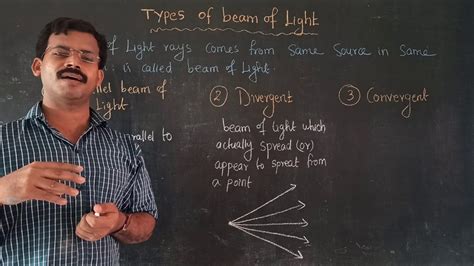 Types of beam of Light
of Light rays comes from same source in same
is called beam of Light.
beam of
Light
to
② Divergent
beam of light which
actually spread (or)
appear to spreat from
a point
③ Convergent